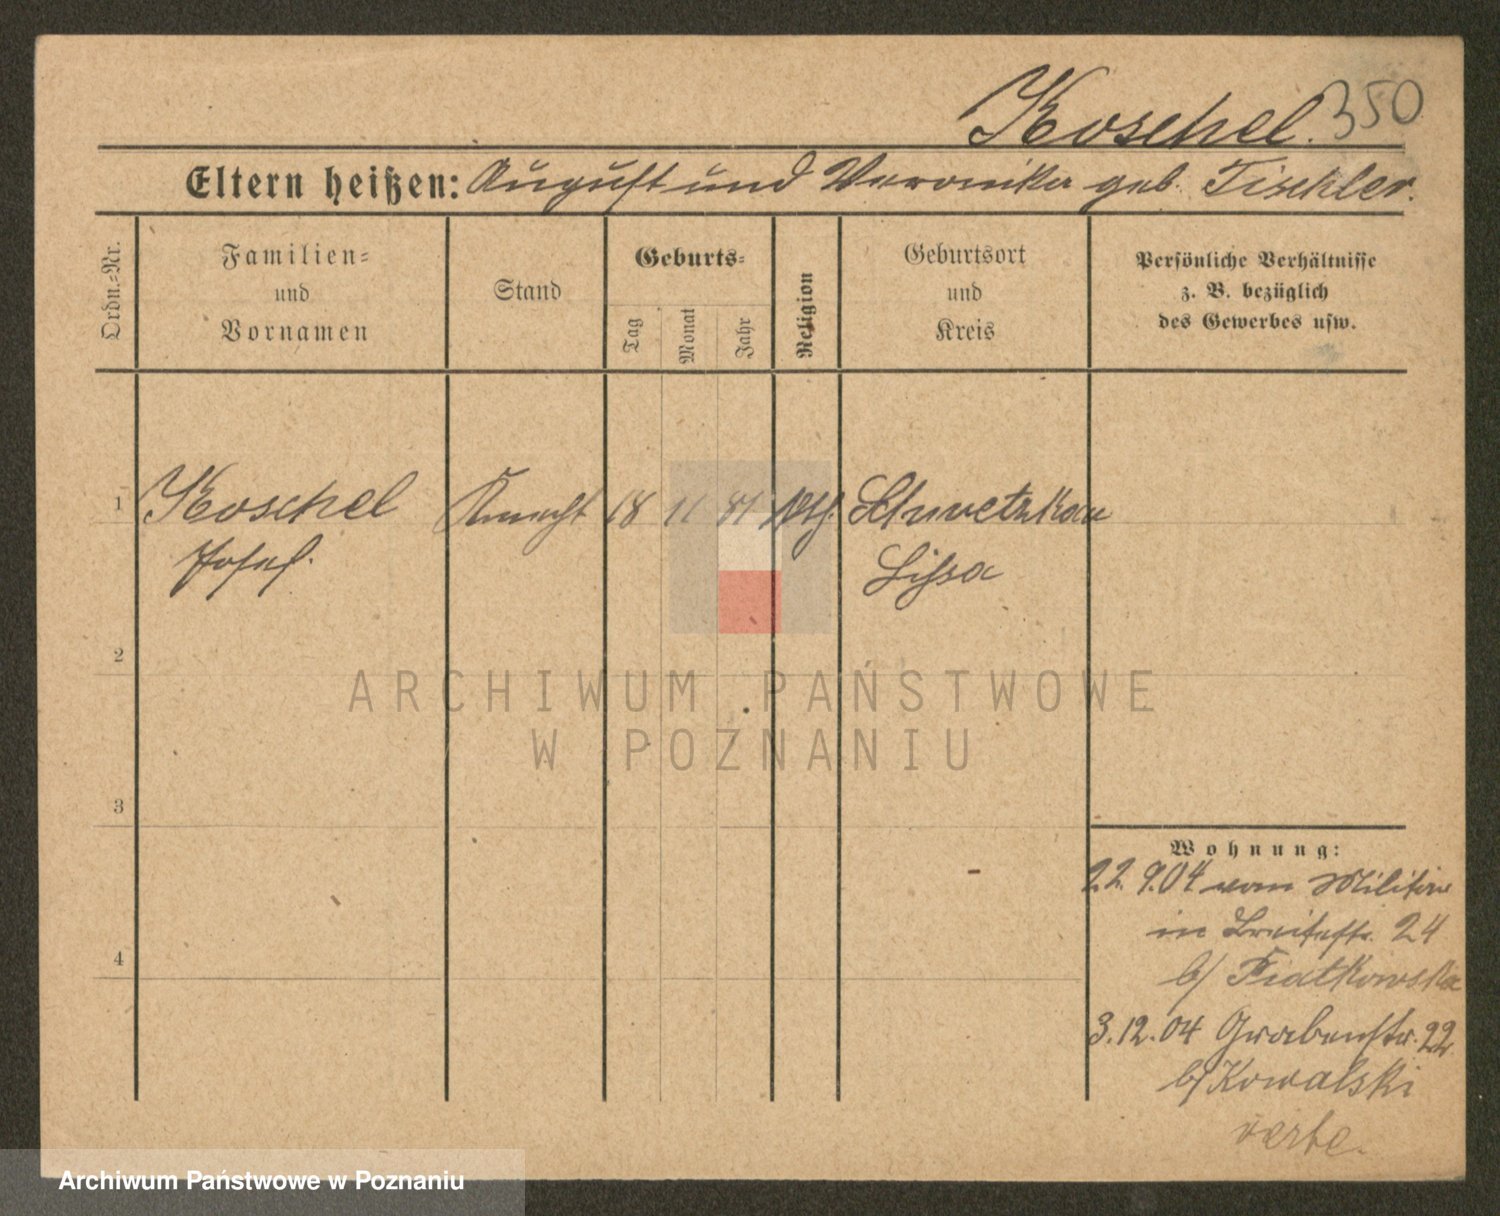 Koschel. 350
Eltern heißen: August und Veronika geb. Tischler.
Ordn.-Nr.
Familien-
und
Vornamen
Stand
Geburts-
Tag
Monat
Jahr
Religion
Geburtsort
und
Kreis
Persönliche Verhältnisse
z. B. bezüglich
des Gewerbes usw.
1 Koschel Knecht 18 11 81 kth. Schwetzkau
Josef. Lissa
2
3
4
Wohnung:
22.9.04 vom Militär
in Breitestr. 24
b/ Fiatkowska
3.12.04 Grabenstr. 22
b/ Kowalski
ARCHIWUM PAŃSTWOWE
W POZNANIU
Archiwum Państwowe w Poznaniu